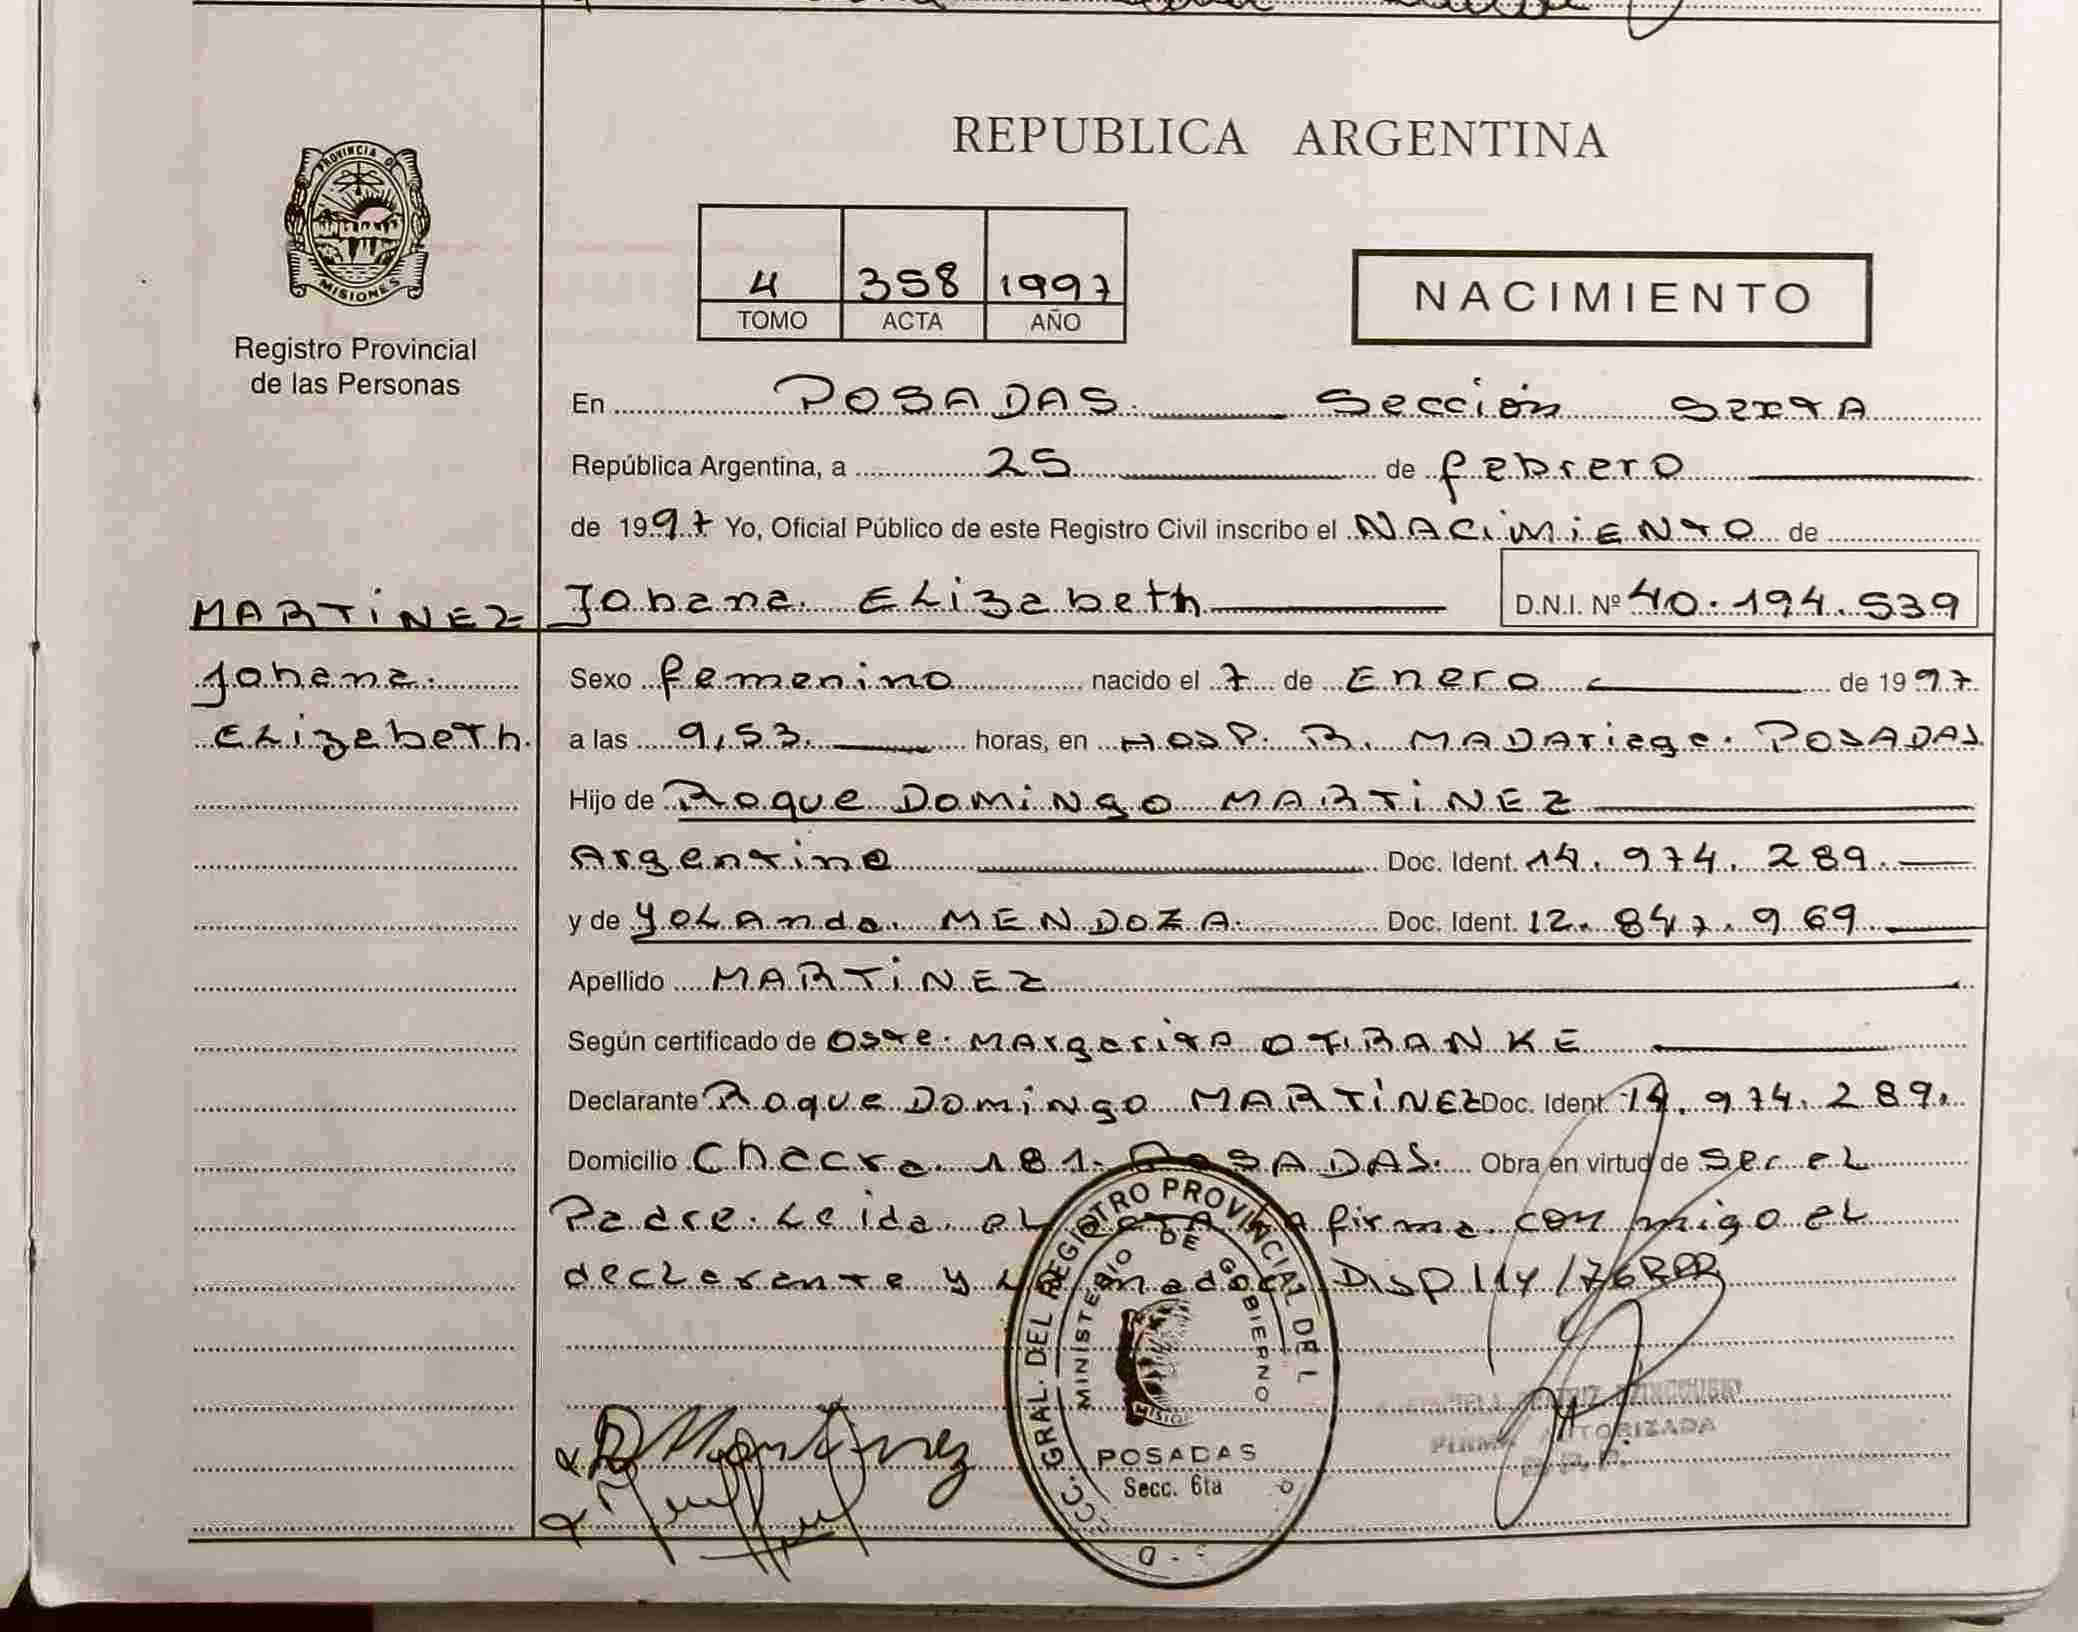 REPUBLICA ARGENTINA
PROVINCIA DE
MISIONES
Registro Provincial
de las Personas
4 358 1997
TOMO ACTA AÑO
NACIMIENTO
En POSADAS. Sección Sexta
República Argentina, a 25 de febrero
de 1997 Yo, Oficial Público de este Registro Civil inscribo el NACIMIENTO de
MARTINEZ Johana Elizabeth D.N.I. Nº 40.194.539
Johana Sexo femenino nacido el 7 de Enero de 1997
Elizabeth. a las 9,53. horas, en Hosp. R. MADAriaga. POSADAS
Hijo de Roque Domingo MARTINEZ
Argentino Doc. Ident. 14.974.289.
y de YOLAnda MENDOZA. Doc. Ident. 12.847.969
Apellido MARTINEZ
Según certificado de Oste. MArgarita
Declarante Roque Domingo MARTINEZ Doc. Ident. 14.974.289.
Domicilio Chacra 181. POSADAS. Obra en virtud de ser el
Padre. Leida el ActA firma con migo el
declarante y Disp 114/76 RPP
GRAL. DEL REGISTRO PROVINCIAL DE L
MINISTERIO DE GOBIERNO
POSADAS
Secc. 6ta
R Martinez
FIRMA AUTORIZADA